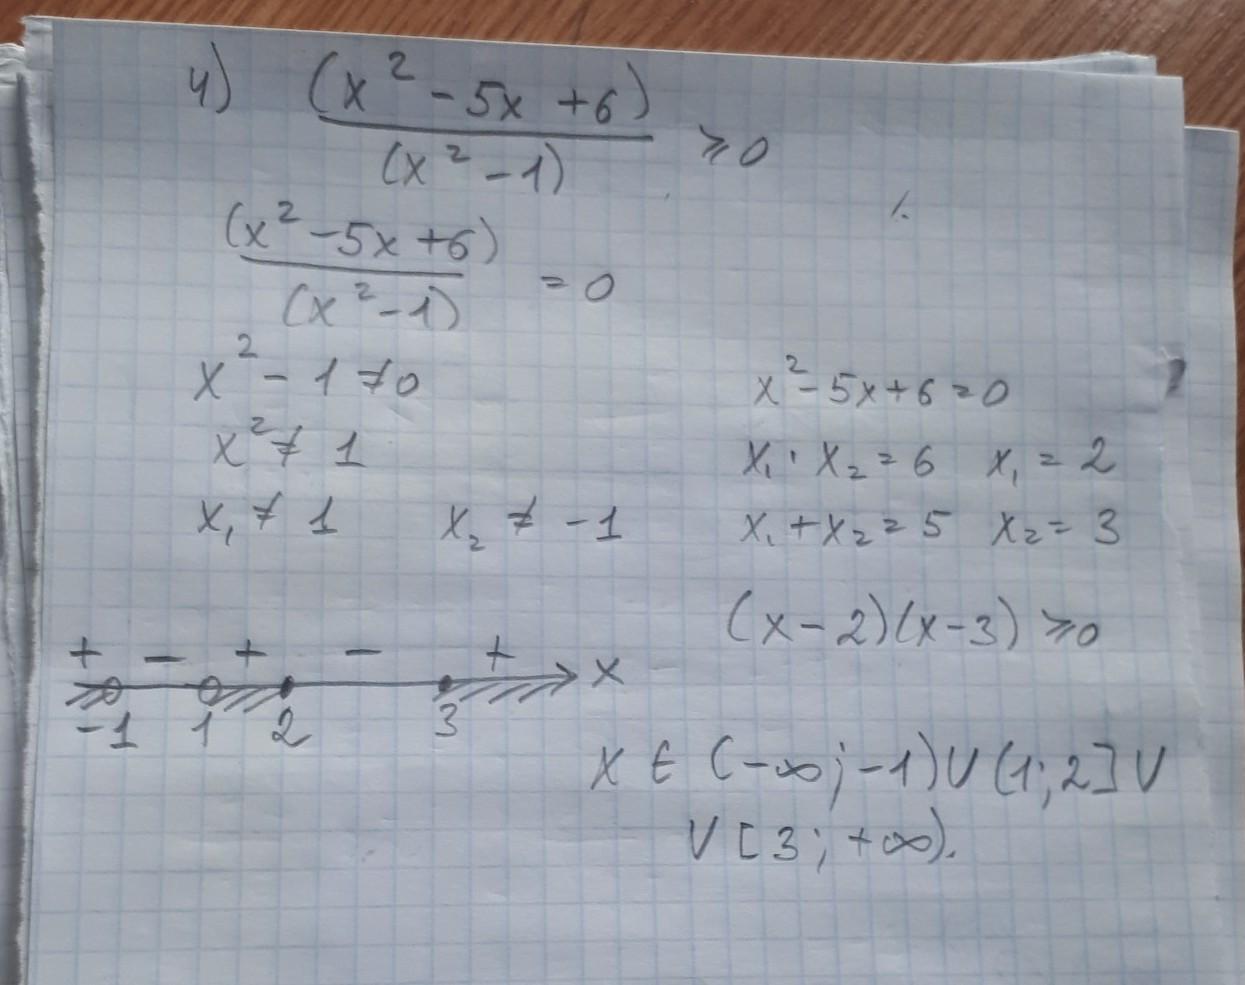 4) (x² - 5x + 6)
(x² - 1) ⩾ 0
(x² - 5x + 6)
(x² - 1) = 0
x² - 1 ≠ 0
x² ≠ 1
x₁ ≠ 1 x₂ ≠ -1
x² - 5x + 6 = 0
x₁ · x₂ = 6 x₁ = 2
x₁ + x₂ = 5 x₂ = 3
(x - 2)(x - 3) ⩾ 0
+ - + - +
-1 1 2 3 x
x ∈ (-∞; -1) ∪ (1; 2] ∪
∪ [3; +∞).